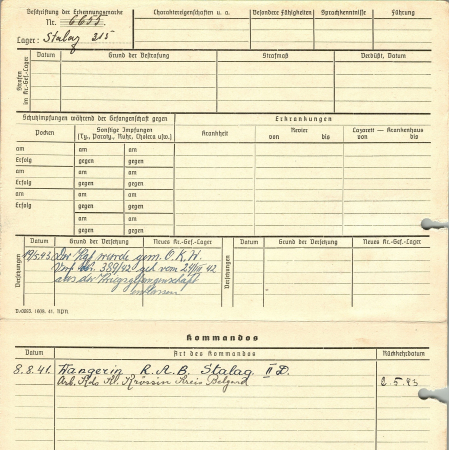 Beschriftung der Erkennungsmarke
Nr. 6655
Lager: Stalag 315
Charaktereigenschaften u. a.
Besondere Fähigkeiten
Sprachkenntnisse
Führung
Strafen im Kr.-Gef.-Lager
Datum
Grund der Bestrafung
Strafmaß
Verbüßt, Datum
Schutzimpfungen während der Gefangenschaft gegen
Erkrankungen
Pocken
Sonstige Impfungen
(Ty., Paraty., Ruhr, Cholera usw.)
Krankheit
Revier
von bis
Lazarett — Krankenhaus
von bis
am am am
Erfolg gegen gegen
am am am
Erfolg gegen gegen
am am am
Erfolg gegen gegen
am am am
Erfolg gegen gegen
am am
gegen gegen
Versetzungen
Datum
Grund der Versetzung
Neues Kr.-Gef.-Lager
Versetzungen
Datum
Grund der Versetzung
Neues Kr.-Gef.-Lager
Der Kgf wurde gem. O.K.W.
389/42 vom 42
aus der Kriegsgefangenschaft
entlassen
Kommandos
Datum
Art des Kommandos
Rückkehrdatum
8.8.41. Wangerin R.A.B. Stalag II D.
Arb. Kdo. Kl. Krössin Kreis Belgard